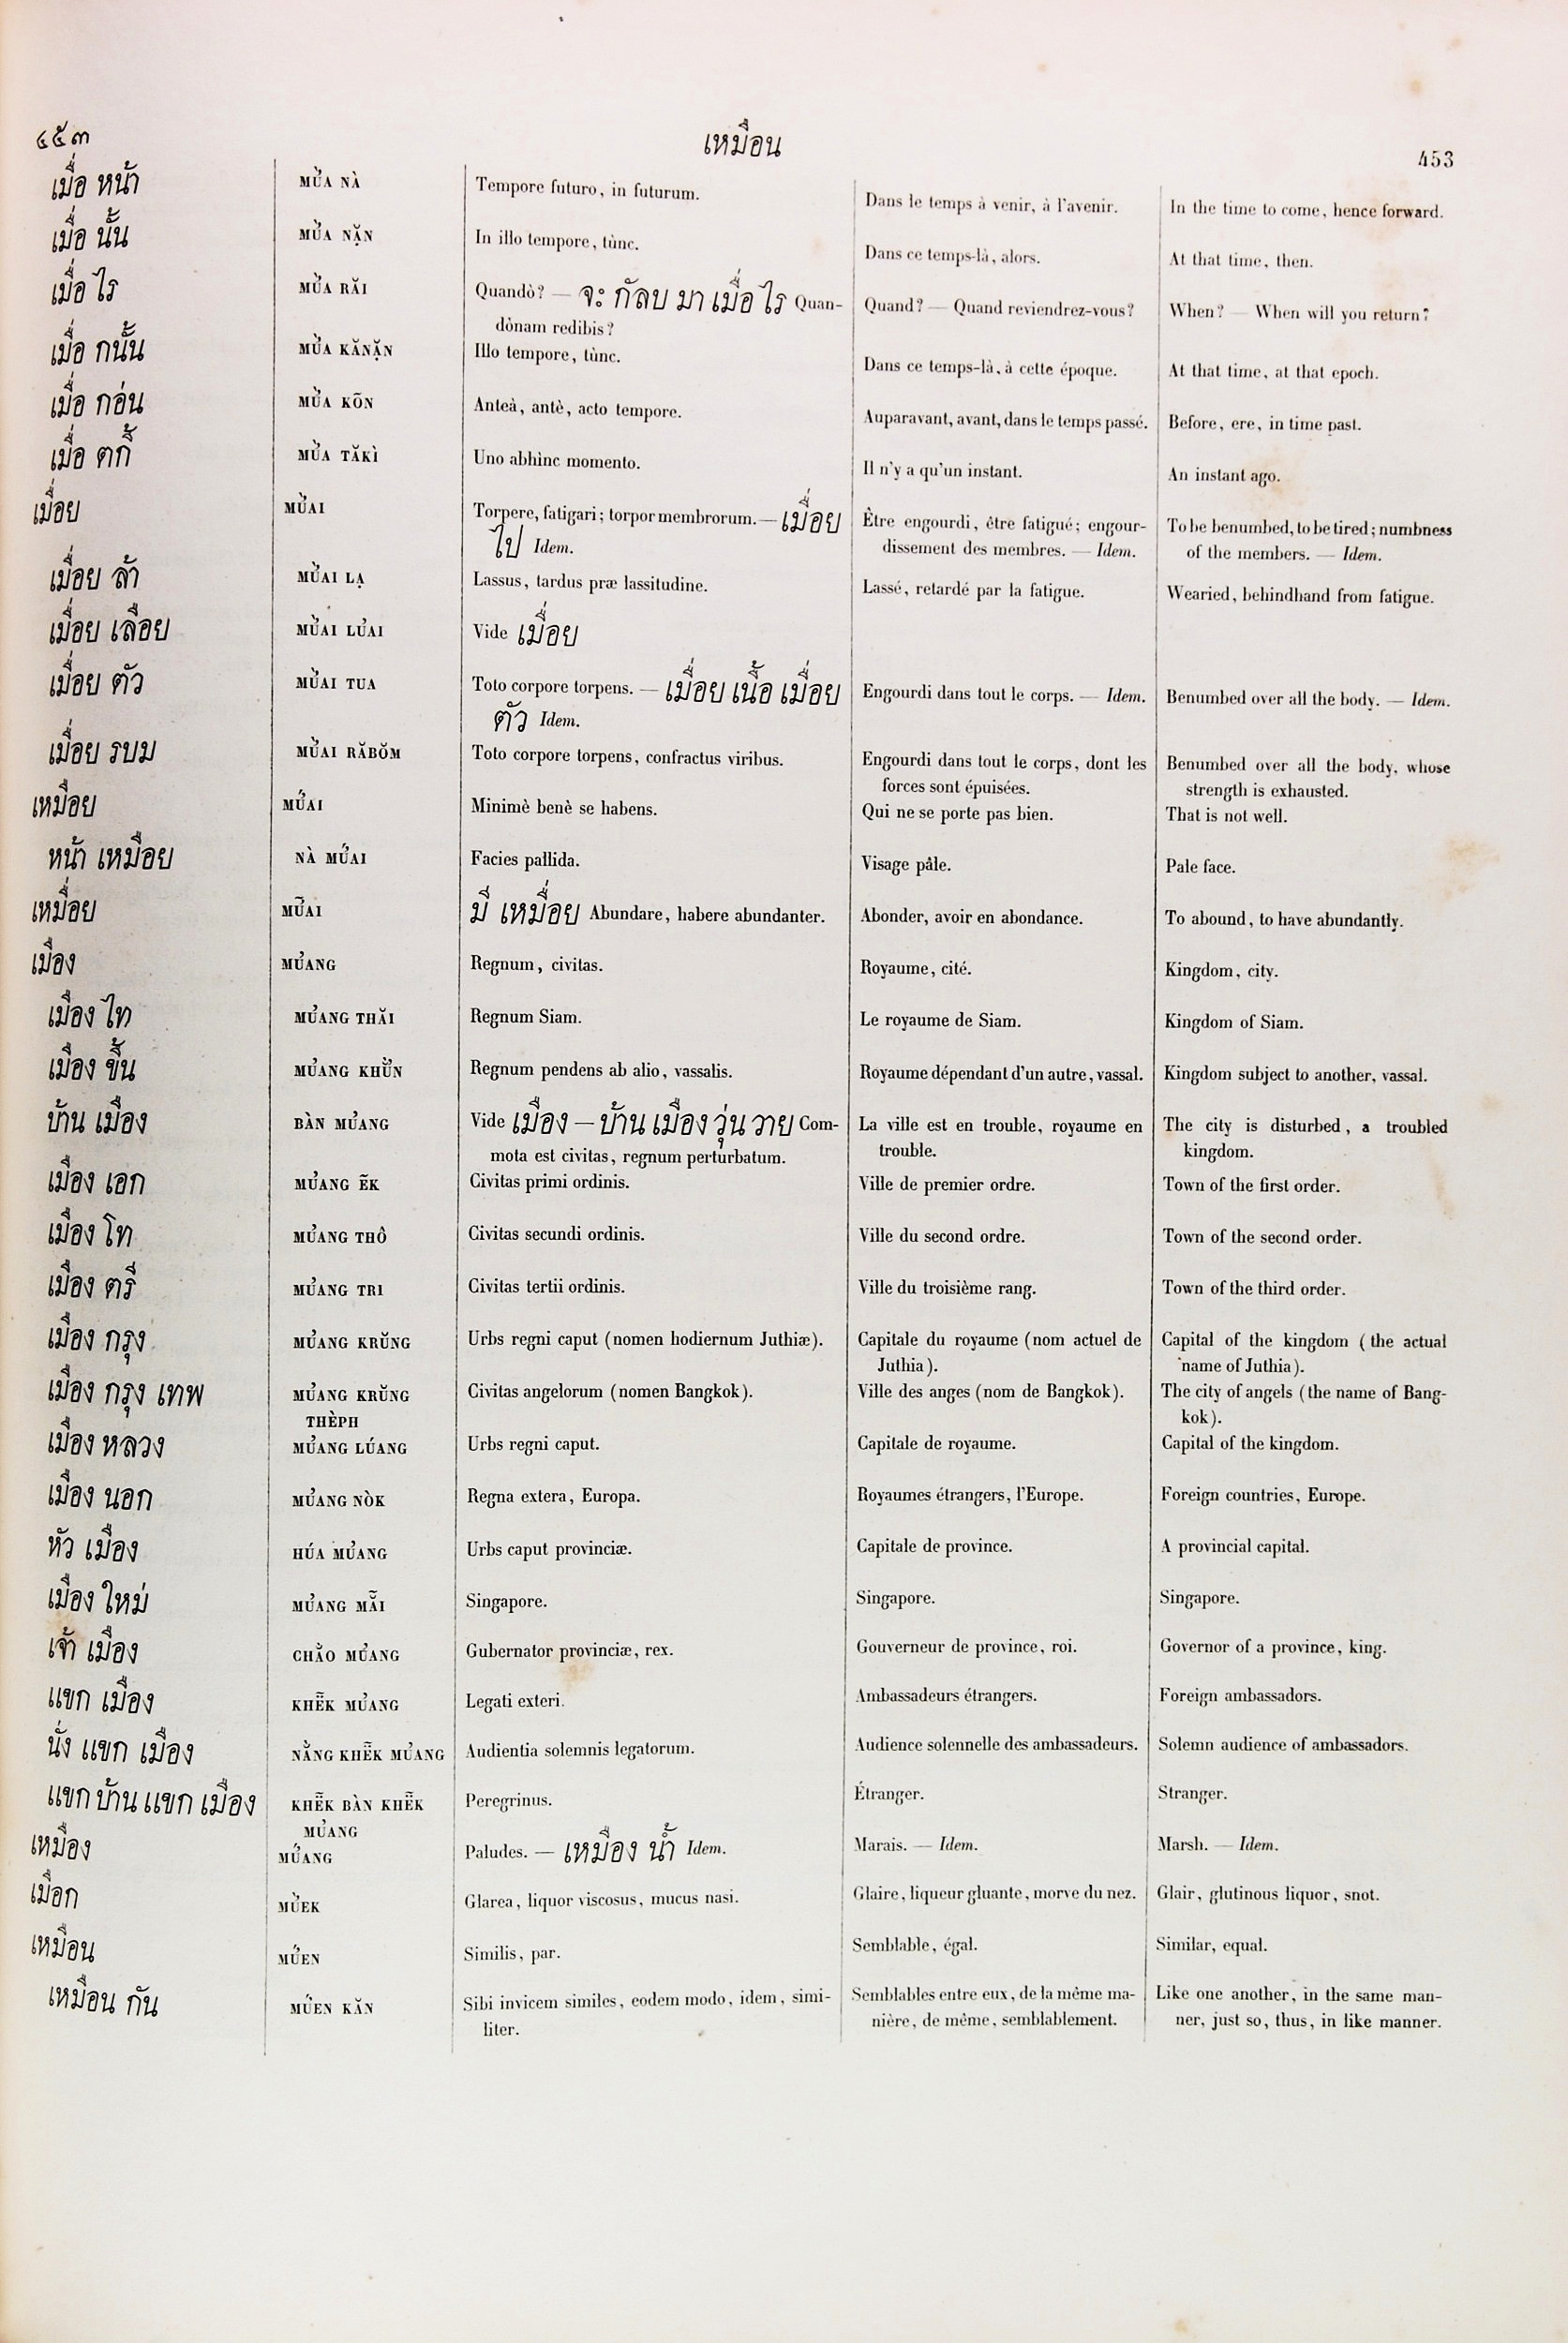 ๔๕๓ เหมือน 453
เมื่อ หน้า MỦ̀A NÀ Tempore futuro, in futurum. Dans le temps à venir, à l'avenir. In the time to come, hence forward.
เมื่อ นั้น MỦ̀A NẶN In illo tempore, tùnc. Dans ce temps-là, alors. At that time, then.
เมื่อ ไร MỦ̀A RĂI Quandò? — จะ กัลบ มา เมื่อ ไร Quan- Quand? — Quand reviendrez-vous? When? — When will you return?
dònam redibis?
เมื่อ กนั้น MỦ̀A KĂNẶN Illo tempore, tùnc. Dans ce temps-là, à cette époque. At that time, at that epoch.
เมื่อ กอ่น MỦ̀A KÕN Anteà, antè, acto tempore. Auparavant, avant, dans le temps passé. Before, ere, in time past.
เมื่อ ตกี้ MỦ̀A TĂKÌ Uno abhìnc momento. Il n'y a qu'un instant. An instant ago.
เมื่อย MỦ̀AI Torpere, fatigari; torpor membrorum. — เมื่อย Être engourdi, être fatigué; engour- To be benumbed, to be tired; numbness
ไป Idem. dissement des membres. — Idem. of the members. — Idem.
เมื่อย ล้า MỦ̀AI LẠ Lassus, tardus præ lassitudine. Lassé, retardé par la fatigue. Wearied, behindhand from fatigue.
เมื่อย เลือย MỦ̀AI LỦAI Vide เมื่อย
เมื่อย ตัว MỦ̀AI TUA Toto corpore torpens. — เมื่อย เนื้อ เมื่อย Engourdi dans tout le corps. — Idem. Benumbed over all the body. — Idem.
ตัว Idem.
เมื่อย รบม MỦ̀AI RĂBŎM Toto corpore torpens, confractus viribus. Engourdi dans tout le corps, dont les Benumbed over all the body, whose
forces sont épuisées. strength is exhausted.
เหมือย MỦ́AI Minimè benè se habens. Qui ne se porte pas bien. That is not well.
หน้า เหมือย NÀ MỦ́AI Facies pallida. Visage pâle. Pale face.
เหมื่อย MỦ̃AI มี เหมื่อย Abundare, habere abundanter. Abonder, avoir en abondance. To abound, to have abundantly.
เมือง MỦANG Regnum, civitas. Royaume, cité. Kingdom, city.
เมือง ไท MỦANG THĂI Regnum Siam. Le royaume de Siam. Kingdom of Siam.
เมือง ขึ้น MỦANG KHỦ̀N Regnum pendens ab alio, vassalis. Royaume dépendant d'un autre, vassal. Kingdom subject to another, vassal.
บ้าน เมือง BÀN MỦANG Vide เมือง — บ้าน เมือง วุ่น วาย Com- La ville est en trouble, royaume en The city is disturbed, a troubled
mota est civitas, regnum perturbatum. trouble. kingdom.
เมือง เอก MỦANG ẼK Civitas primi ordinis. Ville de premier ordre. Town of the first order.
เมือง โท MỦANG THÔ Civitas secundi ordinis. Ville du second ordre. Town of the second order.
เมือง ตรี MỦANG TRI Civitas tertii ordinis. Ville du troisième rang. Town of the third order.
เมือง กรุง MỦANG KRŬNG Urbs regni caput (nomen hodiernum Juthiæ). Capitale du royaume (nom actuel de Capital of the kingdom (the actual
Juthia). name of Juthia).
เมือง กรุง เทพ MỦANG KRŬNG Civitas angelorum (nomen Bangkok). Ville des anges (nom de Bangkok). The city of angels (the name of Bang-
THÈPH kok).
เมือง หลวง MỦANG LÚANG Urbs regni caput. Capitale de royaume. Capital of the kingdom.
เมือง นอก MỦANG NÒK Regna extera, Europa. Royaumes étrangers, l'Europe. Foreign countries, Europe.
หัว เมือง HÚA MỦANG Urbs caput provinciæ. Capitale de province. A provincial capital.
เมือง ใหม่ MỦANG MẴI Singapore. Singapore. Singapore.
เจ้า เมือง CHẰO MỦANG Gubernator provinciæ, rex. Gouverneur de province, roi. Governor of a province, king.
แขก เมือง KHẼK MỦANG Legati exteri. Ambassadeurs étrangers. Foreign ambassadors.
นั่ง แขก เมือง NẰNG KHẼK MỦANG Audientia solemnis legatorum. Audience solennelle des ambassadeurs. Solemn audience of ambassadors.
แขก บ้าน แขก เมือง KHẼK BÀN KHẼK Peregrinus. Étranger. Stranger.
MỦANG
เหมือง MỦ́ANG Paludes. — เหมือง น้ำ Idem. Marais. — Idem. Marsh. — Idem.
เมือก MỦ̀EK Glarea, liquor viscosus, mucus nasi. Glaire, liqueur gluante, morve du nez. Glair, glutinous liquor, snot.
เหมือน MỦ́EN Similis, par. Semblable, égal. Similar, equal.
เหมือน กัน MỦ́EN KĂN Sibi invicem similes, eodem modo, idem, simi- Semblables entre eux, de la même ma- Like one another, in the same man-
liter. nière, de même, semblablement. ner, just so, thus, in like manner.